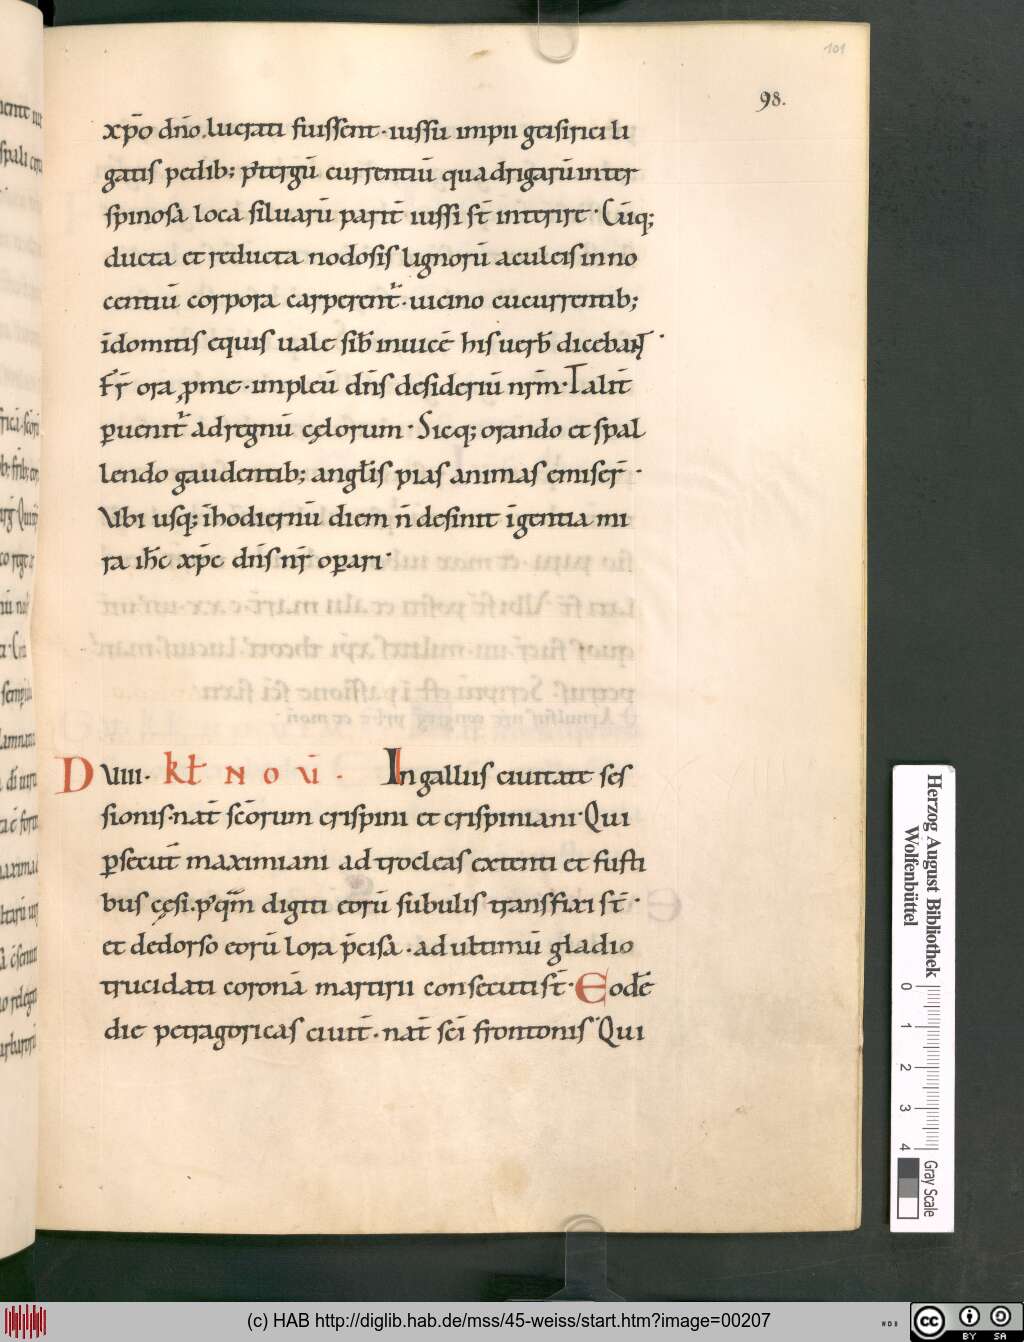 101
98.
xp̄o dn̄o lucrati fuissent· iussu impii geisirici li
gatis pedib; p̄tergū currentiū quadrigarū inter
spinosa loca siluarū parit̄ iussi st̄ interire· Cūq;
ducta et reducta nodosis lignorū aculeis inno
centiū corpora carperent᷑· uicino cucurrentib;
īdomitis equis uale sib̄ inuicē his uerb̄ diceban᷑t·
Fr̄ ora ꝓme· impleū dn̄s desideriū nr̄m· Talit̄
ꝑuenit᷑ ad regnū cęlorum· Sicq; orando et spal
lendo gaudentib; anglīs pias animas emiser̄·
Vbi usq; īhodiernū diem n̄ desinit īgentia mi
ra ih̄c xp̄c dn̄s nr̄ oꝑari·
D VIII· kł N O U̅ · In galliis ciuitate ses
sionis· nat̄ scōrum crispini et crispiniani· Qui
ꝑsecut̄ maximiani ad trocleas extenti et fusti
bus cęsi. p᾽qm̄ digiti eorū subulis transfixi st̄·
et dedorso eorū lora p̄cisa· ad ultimū gladio
trucidati coronā martirii consecuti st̄· Eodē
die petragoricas ciuit̄· nat̄ scī frontonis· Qui
Herzog August Bibliothek
Wolfenbüttel
0 1 2 3 4
Gray Scale
(c) HAB http://diglib.hab.de/mss/45-weiss/start.htm?image=00207
WDB
cc BY SA